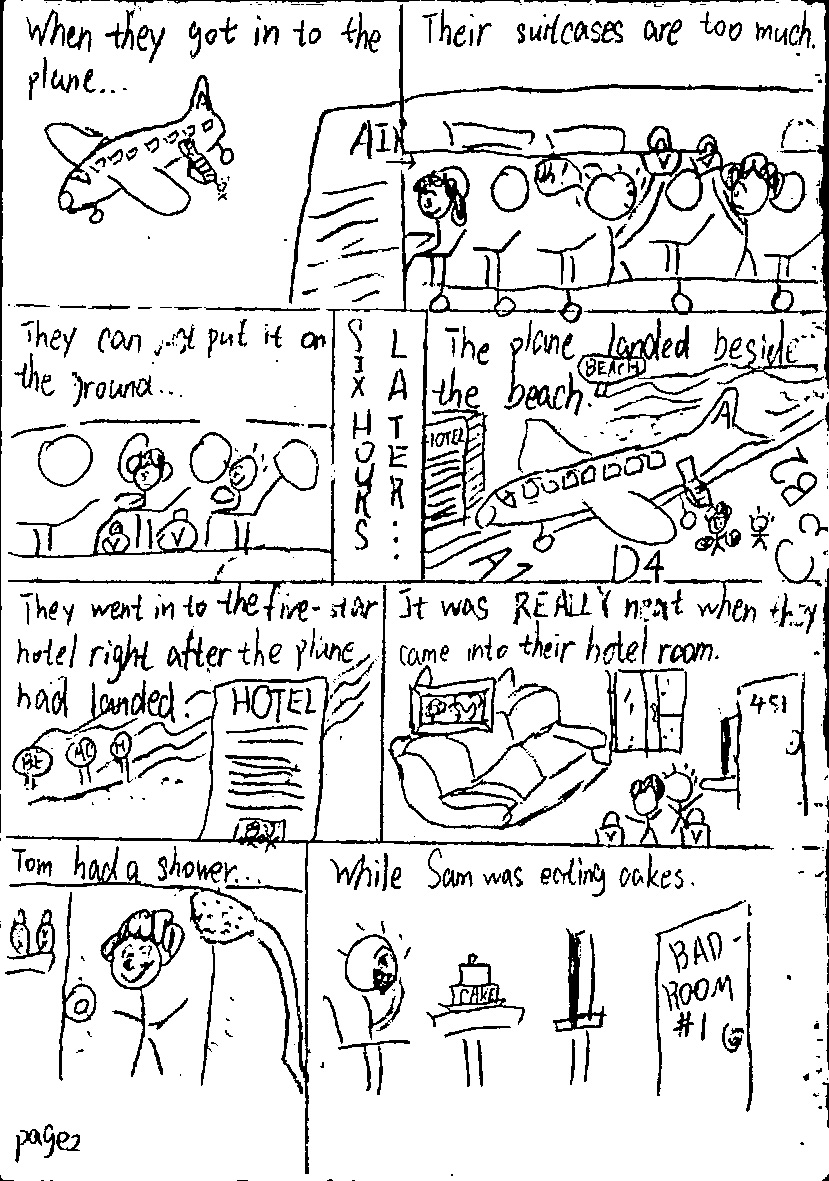 When they got in to the
plane...
A
AIR
Their suitcases are too much.
Oh!
V
V
They can just put it on
the ground...
V
V
SIX HOURS
LATER...
The plane landed beside
the beach.
BEACH
HOTEL
A
D4
They went in to the five-star
hotel right after the plane
had landed.
HOTEL
H
It was REALLY neat when they
came into their hotel room.
451
V
V
Tom had a shower...
While Sam was eating cakes.
CAKE
BAD-
ROOM
#1
page2